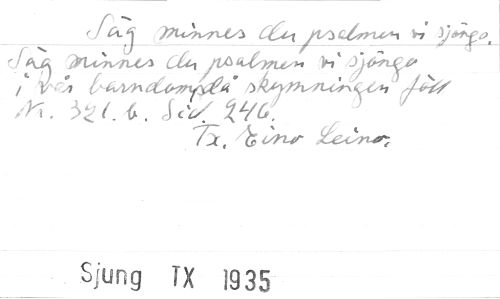 Säg minnes du psalmen vi sjöngo.
Säg minnes du psalmen vi sjöngo
i vår barndom, då skymningen föll
Nr. 321. b. Sid. 246.
Tx. Eino Leino.
Sjung TX 1935